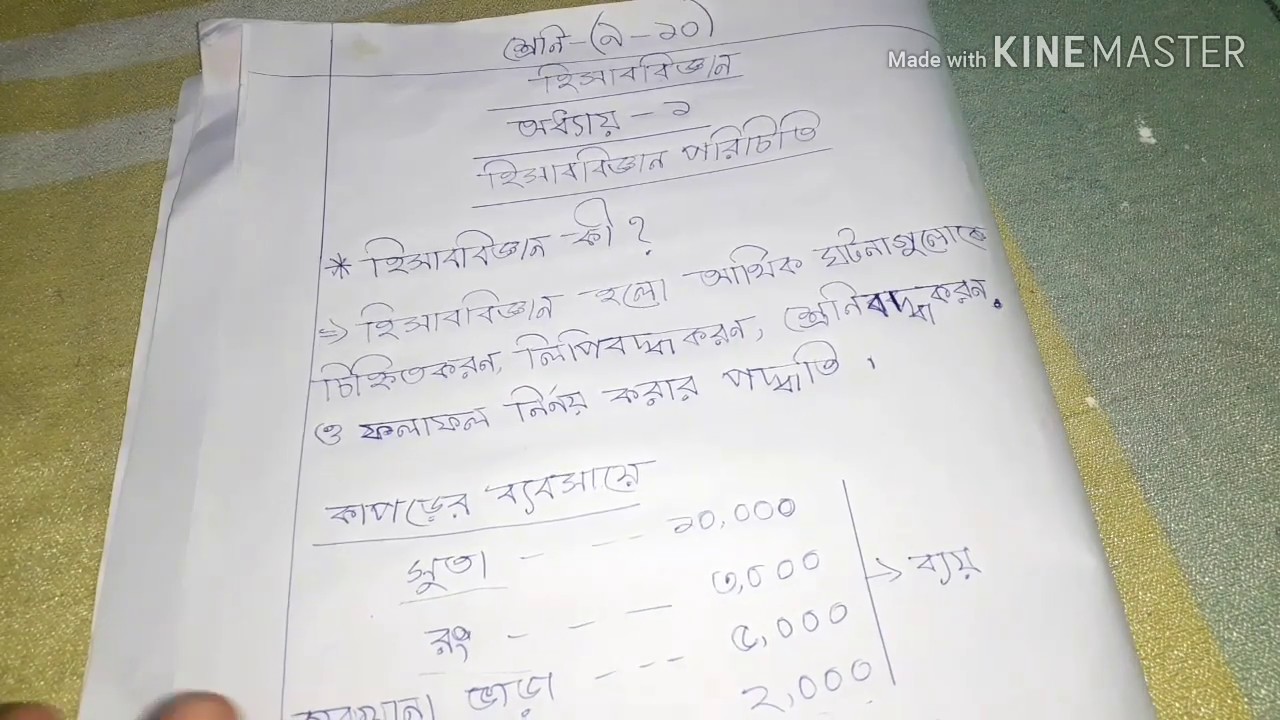 Made with KINEMASTER
শ্রেনি-(৯-১০)
হিসাববিজ্ঞান
অধ্যায় - ১
হিসাববিজ্ঞান পরিচিতি
* হিসাববিজ্ঞান কী?
=> হিসাববিজ্ঞান হলো আর্থিক ঘটনাগুলোকে
চিহ্নিতকরন, লিপিবদ্ধাকরন, শ্রেনিবদ্ধাকরন,
ও ফলাফল নির্নয় করার পদ্ধাতি।
কাপড়ের ব্যবসায়ে
সুতা - - - ১০,০০০
রং - - - ৩,০০০
ভাড়া - - - ৫,০০০
২,০০০
-> ব্যয়